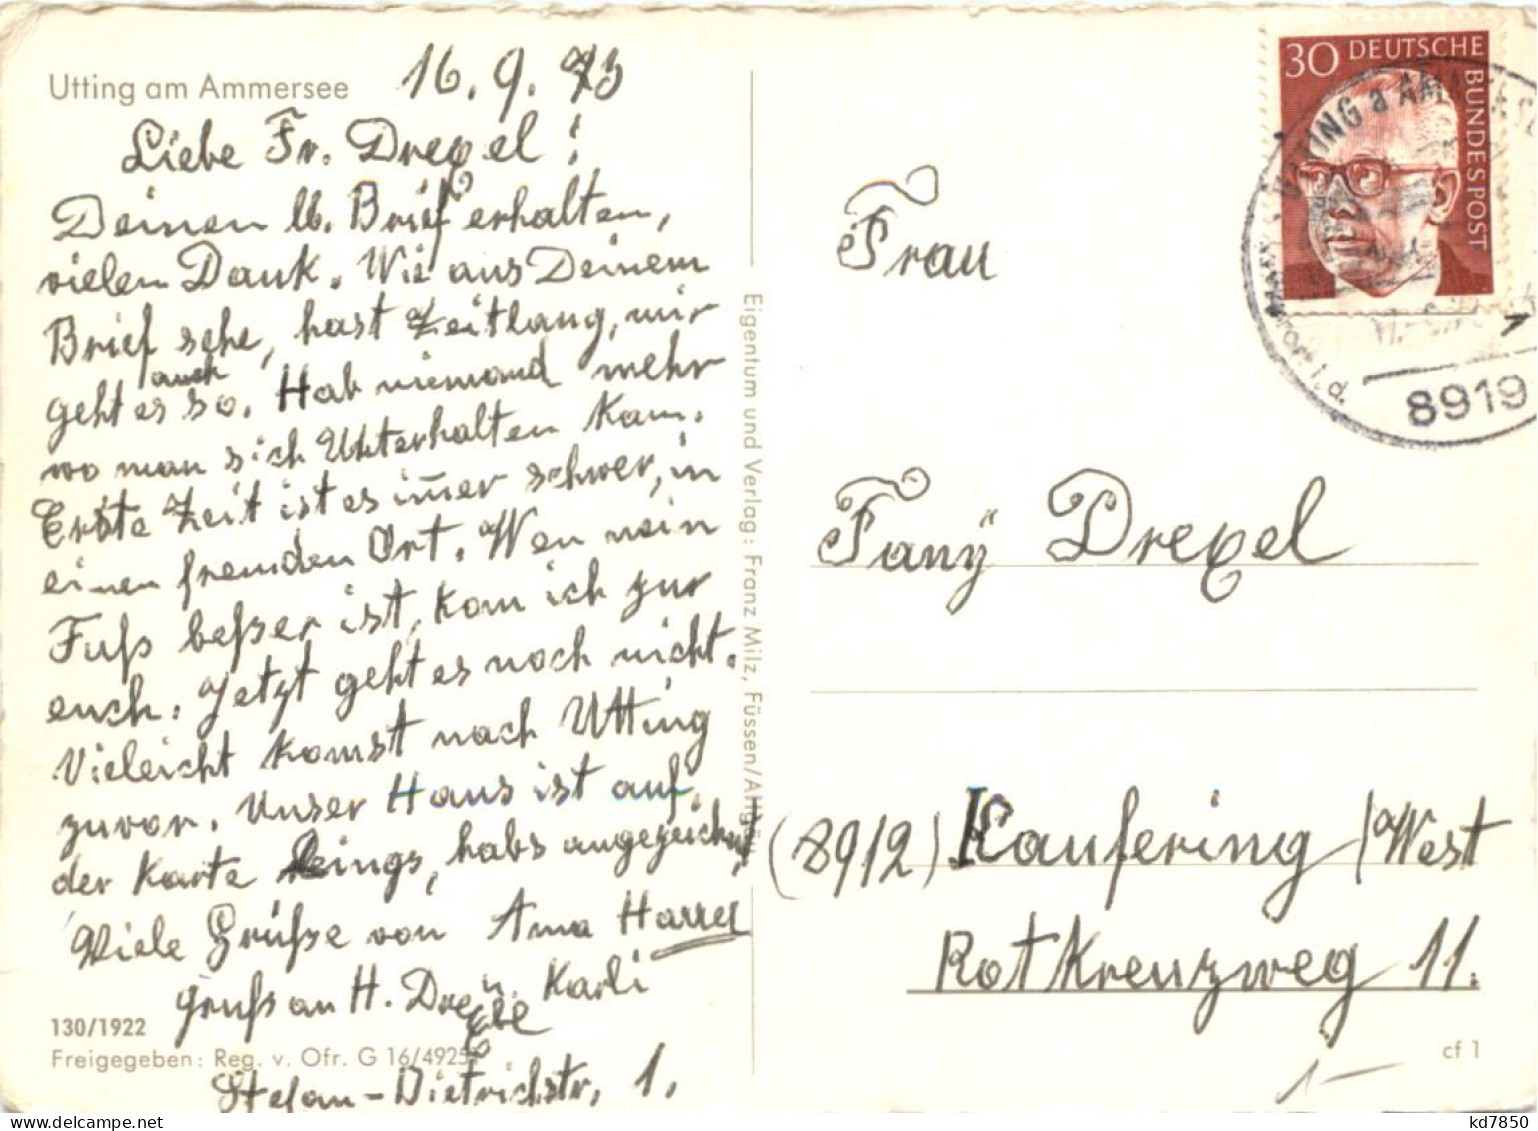 Utting am Ammersee
16.9.73
Liebe Fr. Drexel!
Deinen lb. Brief erhalten,
vielen Dank. Wie aus Deinem
Brief sehe, hast Zeitlang, mir
geht es auch so. Hab niemand mehr
wo man sich Unterhalten kan.
Erste Zeit ist es im̄er schwer, in
einen fremden Ort. Wen mein
Fuß beßer ist, kom ich zur
euch. Jetzt geht es noch nicht.
Vieleicht komst nach Utting
zuvor. Unser Haus ist auf
der Karte links, habs angezeichnet
Viele Grüße von Anna
Gruß an H. Drexel u. Karli
Stefan-Dietrichstr. 1.
130/1922
Freigegeben: Reg. v. Ofr. G 16/4925
Eigentum und Verlag: Franz Milz, Füssen/Allgäu
30 DEUTSCHE
BUNDESPOST
UTTING a AMMERSEE
8919
Frau
Fanÿ Drexel
(8912) Kaufering /West
Rotkreuzweg 11.
cf 1
kd7850